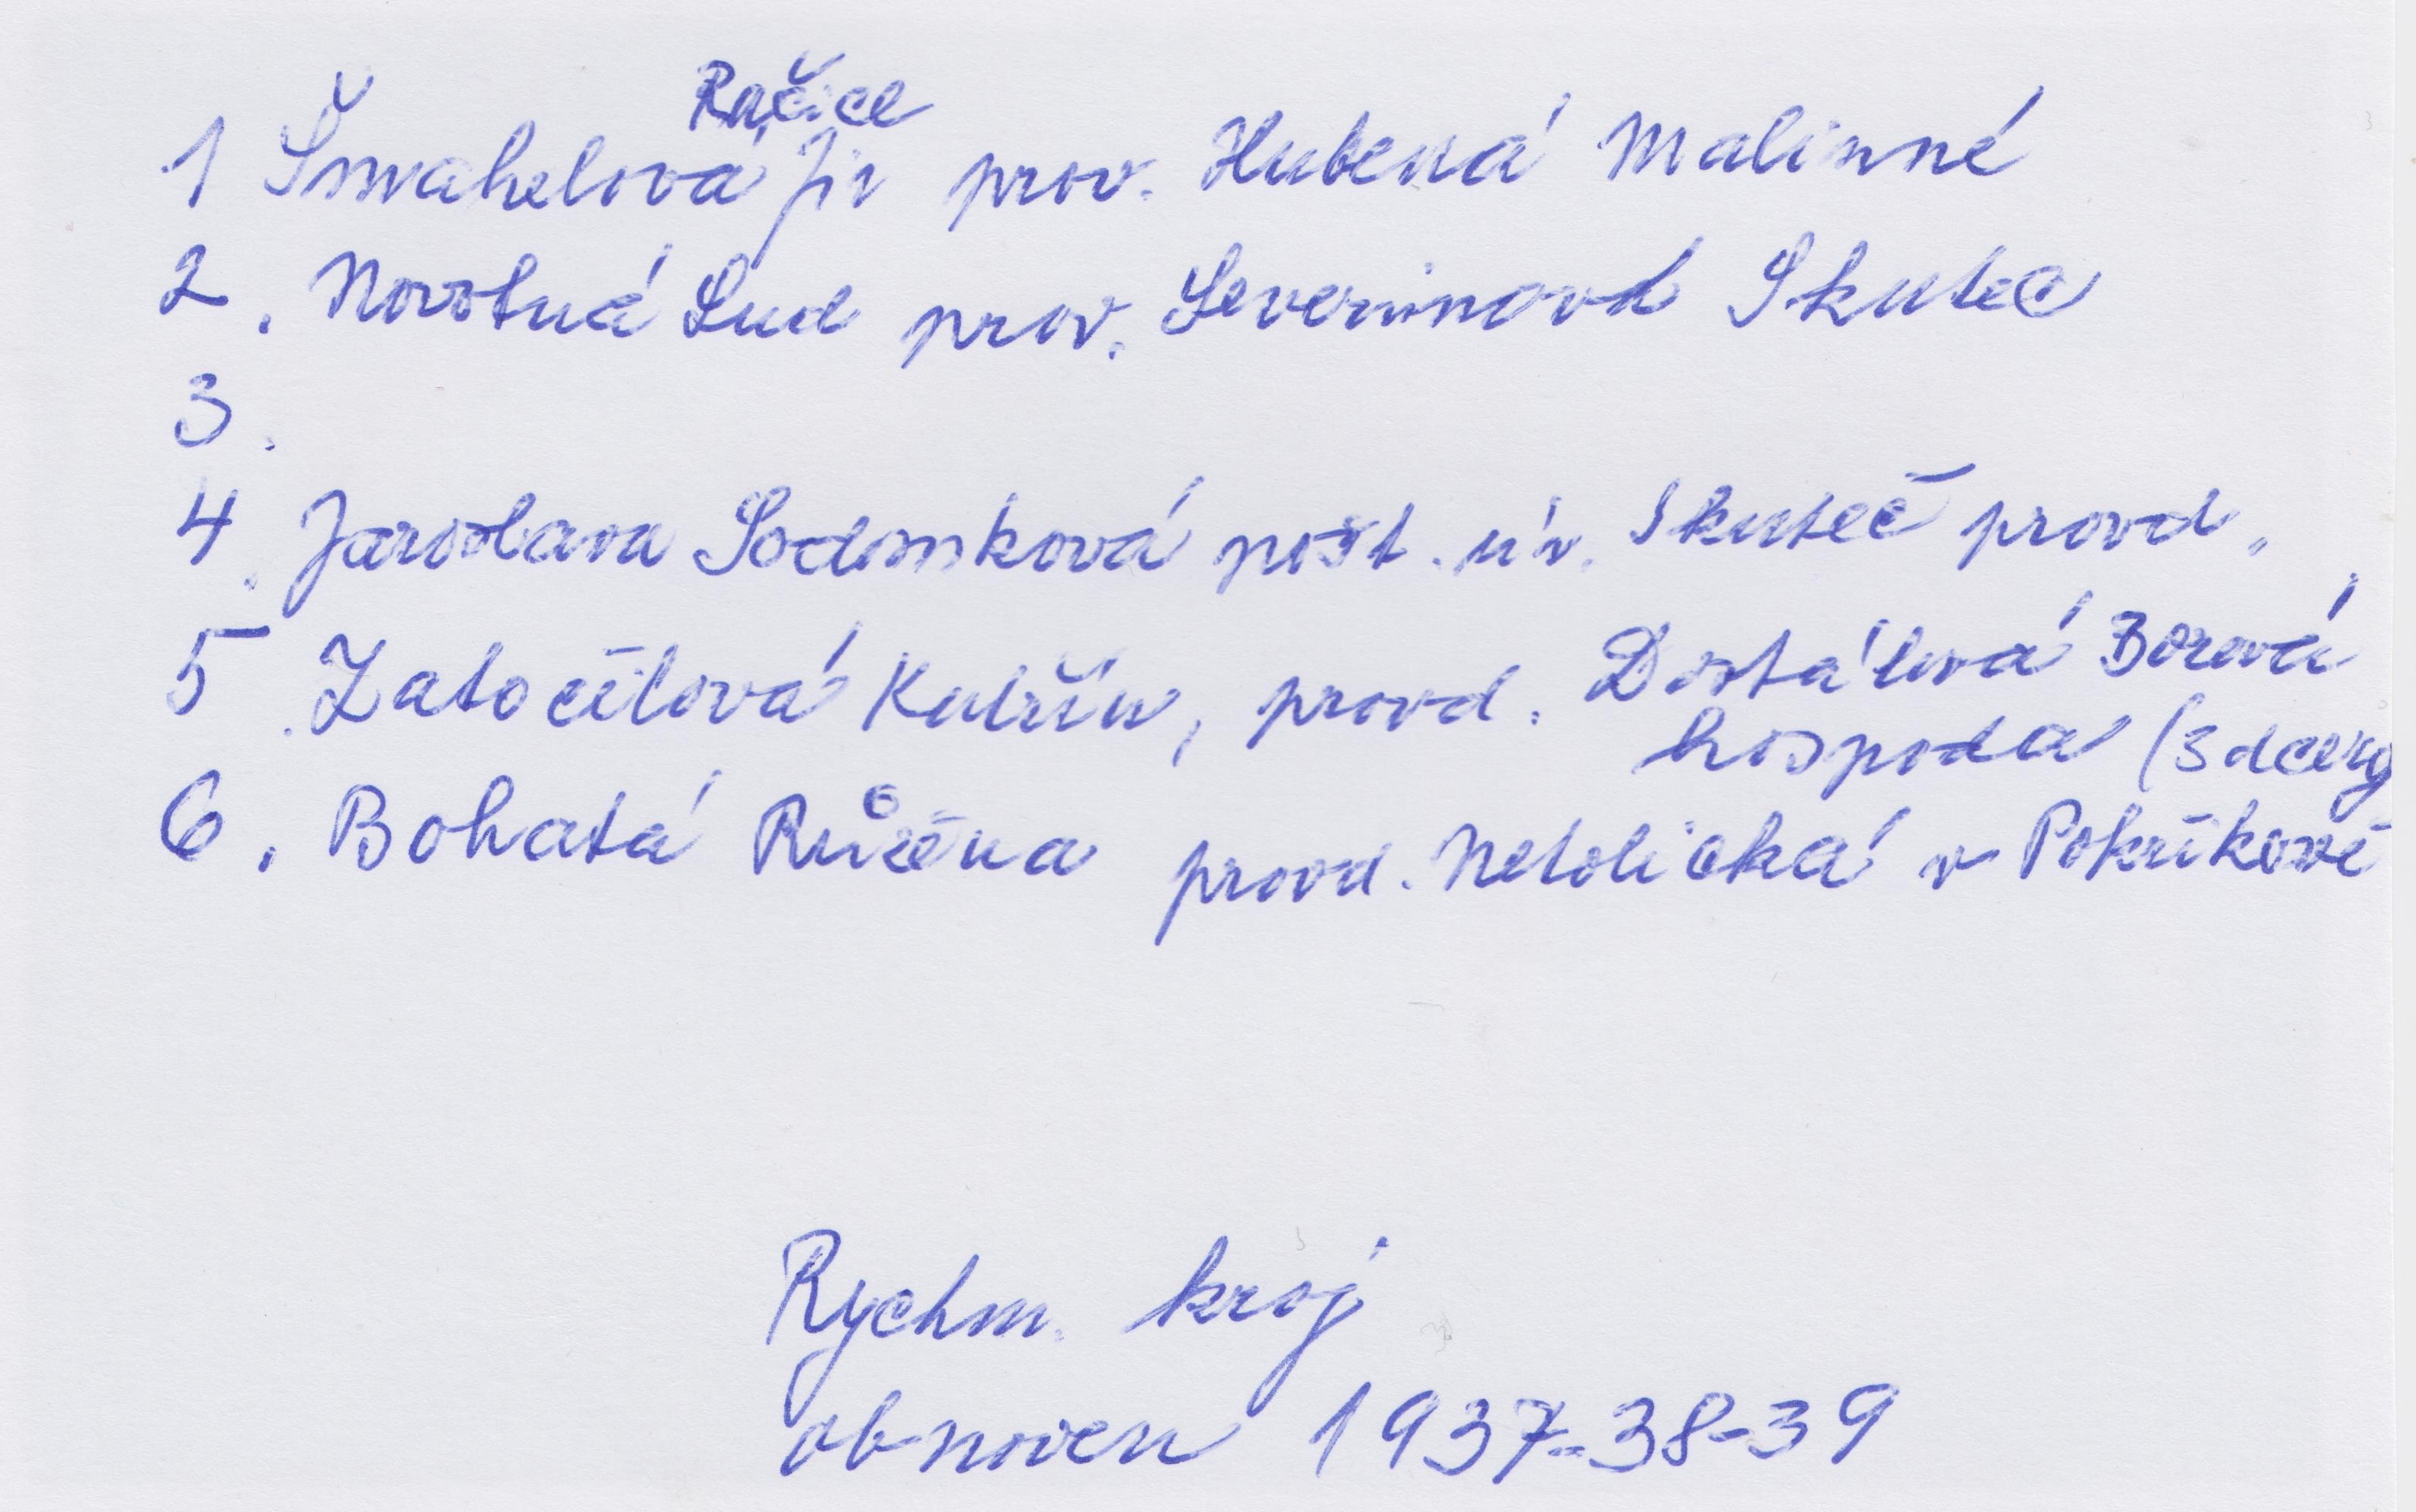 Račice
1 Šmahelová Jir prov. Hubená Malinné
2. Novotná Lud prov. Severinová Skuteč
3.
4. Jaroslava Sodomková pošt. úř. Skuteč provd.
5. Zatočilová Kutřín, provd. Dostálová Borová
hospoda (3 dcery
6. Bohatá Růžena provd. Netolická v Pokřikově
Rychm. kroj
obnoven 1937-38-39